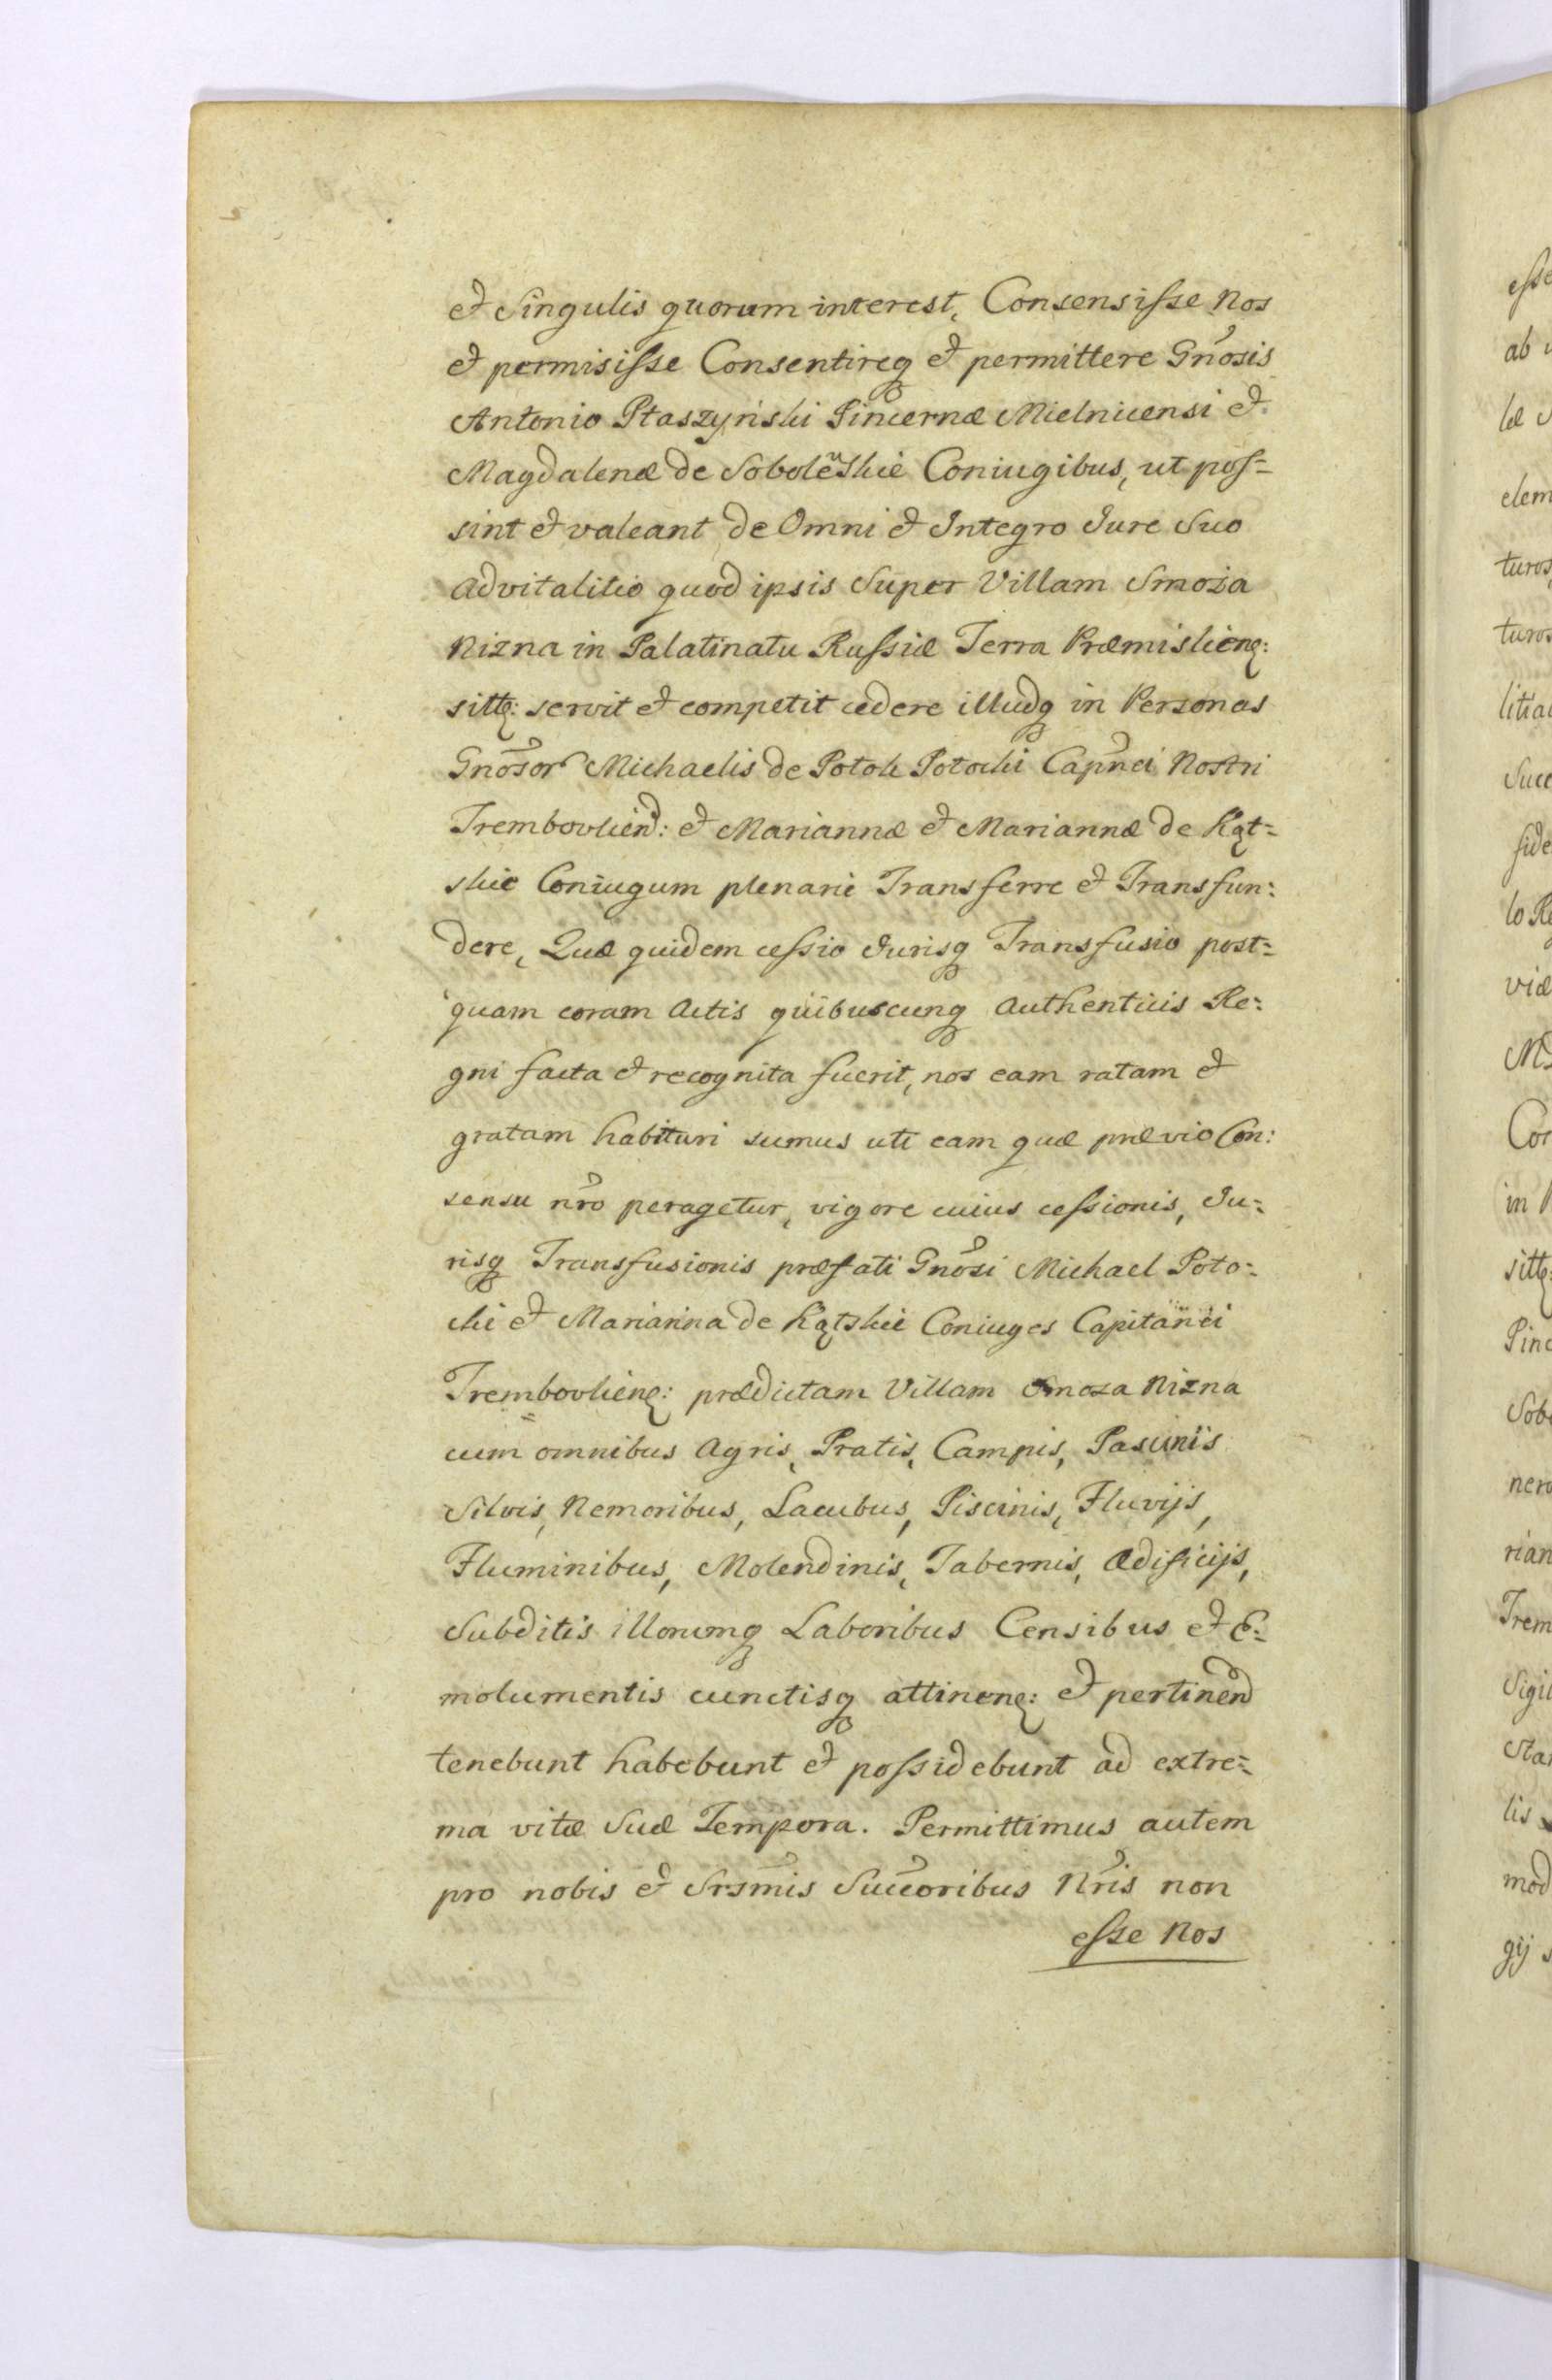 et Singulis quorum interest, Consensisse Nos
et permisisse Consentireq et permittere Gnosis
Antonio Ptaszyński Pincernæ Mielnicensi et
Magdalenæ de Sobolewskie Coniugibus, ut pos=
sint et valeant de Omni et Integro Jure Suo
Advitalitio quod ipsis Super Villam Smoża
Nizna in Palatinatu Russiæ Terra Præmislien:
sitt: servit et competit cedere illudq in Personas
Gnosor Michaelis de Potok Potocki Capnei Nostri
Trembovlien: et Mariannæ et Mariannæ de Kąt=
skie Coniugum plenarie Transferre et Transfun:
dere, Quæ quidem cessio Jurisq Transfusio post=
quam coram Actis quibuscunq Authenticis Re:
gni facta et recognita fuerit, nos eam ratam et
gratam habituri sumus uti eam quæ prævio Con:
sensu nro peragetur, vigore cuius cessionis, Ju=
risq Transfusionis præfati Gnosi Michael Poto=
cki et Marianna de Kątskie Coniuges Capitanei
Trembovlien: prædictam Villam Smoza Nizna
cum omnibus Agris, Pratis, Campis, Pascuis
Silvis, Nemoribus, Lacubus, Piscinis, Fluvijs,
Fluminibus, Molendinis, Tabernis, Ædificijs,
Subditis illorumq Laboribus Censibus et E=
molumentis cunctisq attinen: et pertinen
tenebunt habebunt et possidebunt ad extre=
ma vitæ Suæ Tempora. Permittimus autem
pro nobis et Srsmis Succoribus Nris non
esse Nos
esse
ab
læ
elem
turos
turos
litia
Succ
fide
lo Re
viæ
Cor
in
sitt:
Pinc
Sob
nero
rian
Trem
Sigil
Sta
lis
mod
gij